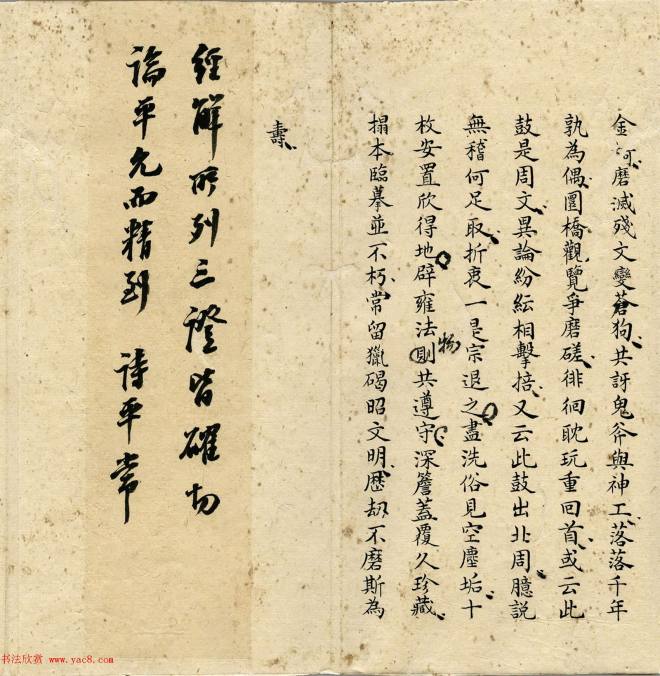 金河磨滅殘文變蒼狗共訝鬼斧與神工落落千年
孰為偶圜橋觀覽爭磨磋徘徊耽玩重回首或云此
鼓是周文異論紛紜相擊掊又云此鼓出北周臆說
無稽何足取折衷一是宗退之盡洗俗見空塵垢十
枚安置欣得地辟雍法則共遵守深簷蓋覆久珍藏
物
搨本臨摹並不朽常留獵碣昭文明歷劫不磨斯為
壽
經解所列三證皆確切
論平允而精到 詩平常
书法欣赏 www.yac8.com